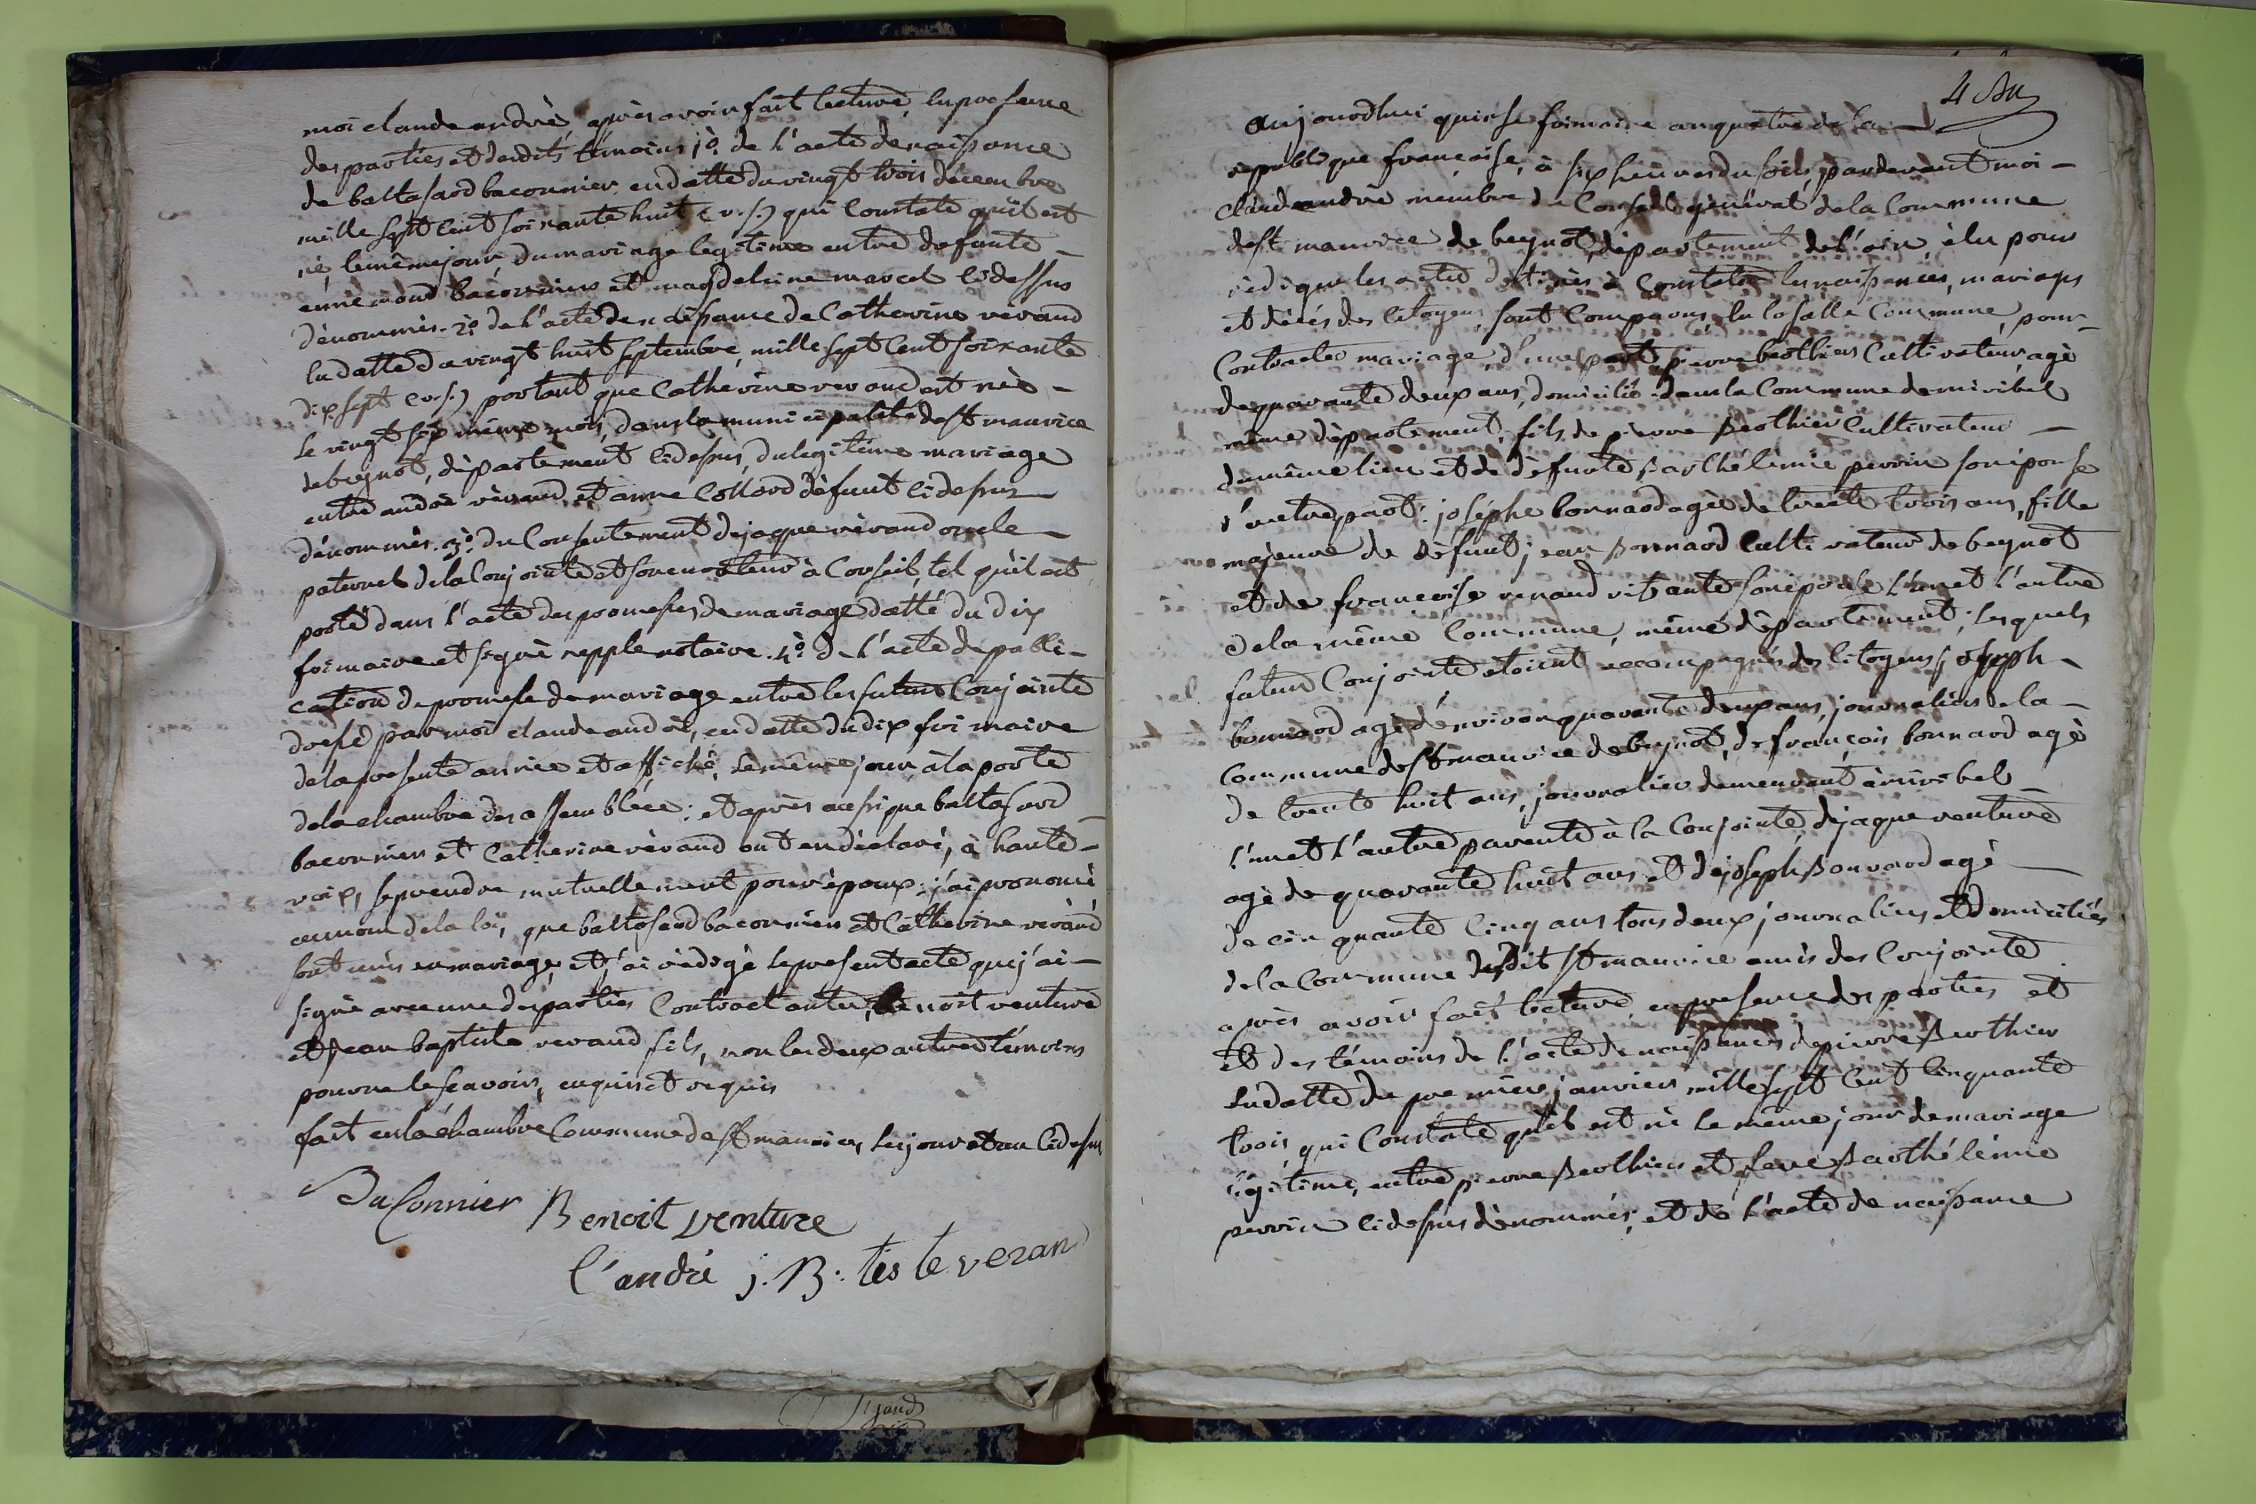 moi claude andré après avoir fait lecture, en presence
des parties et desdits témoins 1º. de l'acte de naissance
de baltasard baconnier en datte du vingt trois décembre
mille sept cent soixante huit (v. s.) qui constate qu'il est
né le même jour du mariage legitime entre defunte
ennemond baconnier et magdeleine marcel cidessus
dénommés. 2º de l'acte de naissance de Catherine verand
en datte du vingt huit septembre mille sept cent soixante
dix sept (v. s.) portant que Catherine verand est née
le vingt même mois, dans la municipalité de St maurice
de beynot, département cidessus, du legitime mariage
entre andré vérand et anne Collard défunt cidessus
dénommés. 3º. du Consentement de jaque vérand oncle
paternel de la Conjointe et son curateur à Conseil, tel qu'il est
porté dans l'acte des promesses de mariage datté du dix
frimaire et signé notaire. 4º. de l'acte de publi-
cation de promesse de mariage entre les futurs Conjoints
dressé par moi claude andré, en datte du dix frimaire
de la presente année et affiché le même jour à la porte
de la chambre des assemblées; et après aussi que baltasard
baconnier et Catherine vérand ont eu déclaré, à haute
voix, se prendre mutuellement pour époux; j'ai prononcé
au nom de la loi, que baltasard baconnier et Catherine vérand
sont unis en mariage, et j'ai rédigé le present acte que j'ai
signé avec une des parties Contractantes, benoit venture
et jean baptiste verand fils, non les deux autres témoins
pour ne le sçavoir, enquis et requis
fait en la chambre Commune de St maurice, les jour et an cidessus
Baconnier Benoit venture
C. andré j. B. tiste veran
4
aujourdhui quinse frimaire an quatre de la
république française, à six heures du soir, pardevant moi
claude andré membre du Conseil général de la Commune
de St maurice de beynot, département de l'ain élu pour
rédiger les actes destinés à constater les naissances, mariages
et décés des citoyens, sont comparus en la salle Commune, pour
Contracter mariage, d'une part, pierre berthier Cultivateur agé
de quarante deux ans, domicilié dans la Commune de miribel
même département, fils de pierre Berthier Cultivateur
du même lieu et de défunte Barthélemie perrin son épouse
d'autre part: joséphe bonnard agée de trente trois ans, fille
majeure de défunt jean Bonnard Cultivateur de beynot
et de francoise renaud vivante son épouse l'un et l'autre
de la même Commune, même département; lesquels
futurs Conjoints étoient accompagnés des citoyens joseph
bonnard agé d'environ quarante deux ans, journalier de la
Commune de St maurice de beynot, de françois bonnard agé
de trente huit ans, journalier demeurant à miribel
l'un et l'autre parents à la Conjointe, de jaque venture
agé de quarante huit ans et de joseph Bonnard agé
de cinquante cinq ans tous deux journaliers et domiciliés
de la Commune dudit St maurice amis des Conjoints
après avoir fait lecture en presence des parties et
et des témoins de l'acte de naissance de pierre Berthier
en datte du premier janvier mille sept cent cinquante
trois qui Constate qu'il est né le même jour de mariage
légitime, entre pierre Berthier et feue Barthélemie
perrin cidessus dénommés; et de l'acte de naissance